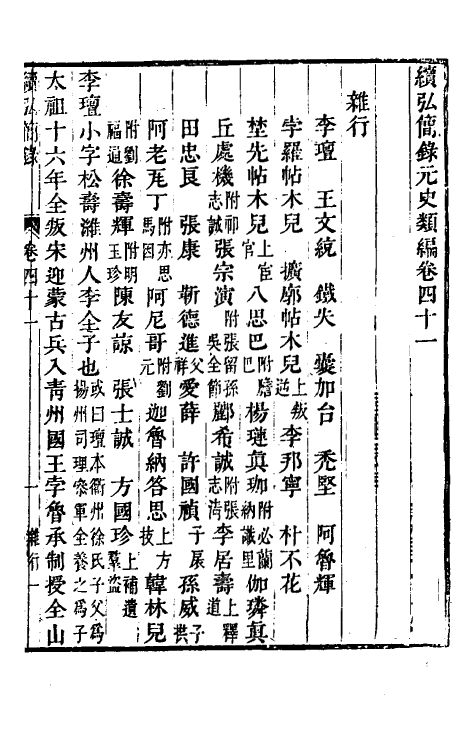 續弘簡錄元史類編卷四十一
雜行
李璮　王文統　鐵失　囊加台　禿堅　阿魯輝
孛羅帖木兒　擴廓帖木兒上叛逆李邦寧　朴不花
埜先帖木兒上宦官八思巴附膽巴楊璉眞珈附必蘭納識里伽璘眞
丘處機附祁志誠張宗演附張留孫吳全節酈希誠附張志清李居壽上釋道
田忠良　張康　靳德進父祥愛薛　許國禎子扆孫威子拱
阿老瓦丁附亦思馬因阿尼哥附劉元迦魯納答思上方技韓林兒
附劉福通徐壽輝附明玉珍陳友諒　張士誠　方國珍上補遺羣盜
李璮小字松壽濰州人李全子也或曰璮本衢州徐氏子父爲揚州司理參軍全養之爲子
太祖十六年全叛宋迎蒙古兵入青州國王孛魯承制授全山
續弘簡錄　卷四十一　一　雜行一